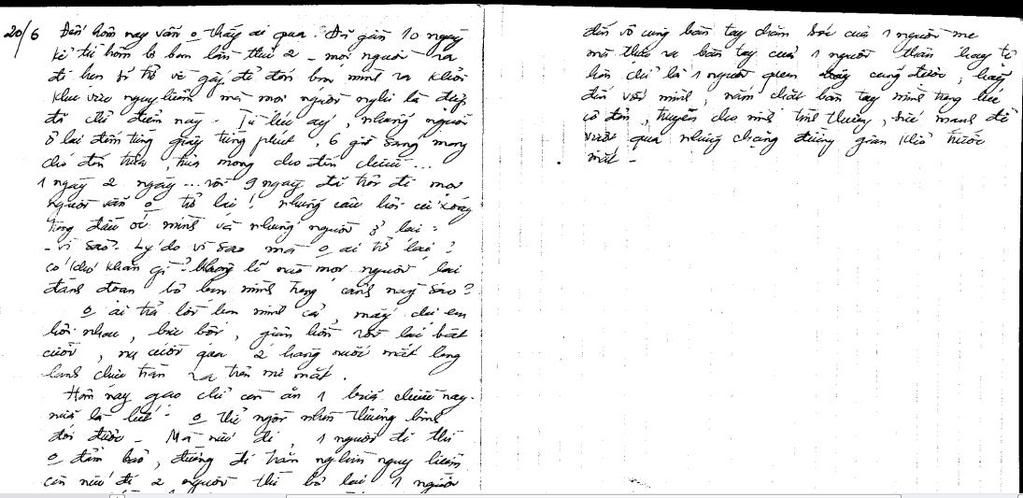 20/6 Đến hôm nay vẫn o thấy ai qua. Đã gần 10 ngày
kể từ hôm bị bom lần thứ 2 - mọi người ra
đi hẹn sẽ trở về gấp để đón bọn mình ra khỏi
khu vực nguy hiểm mà mọi người nghi là điệp
đã chỉ điểm này. Từ lúc ấy, những người
ở lại đếm từng giây từng phút, 6 giờ sáng mong
cho đến trưa, trưa mong cho đến chiều...
1 ngày 2 ngày ... rồi 9 ngày đã trôi đi mọi
người vẫn o trở lại! Những câu hỏi cứ xoáy
trong đầu óc mình và những người ở lại:
- Vì sao? Lý do vì sao mà o ai trở lại?
có khó khăn gì? Không lẽ nào mọi người lại
đành đoạn bỏ bọn mình trong cảnh này sao?
o ai trả lời bọn mình cả, mấy chị em
hỏi nhau, bực bội, giận hờn rồi lại bật
cười, nụ cười qua 2 hàng nước mắt long
lanh chực tràn ra trên mi mắt.
Hôm nay gạo chỉ còn ăn 1 bữa chiều nay
nữa là hết. o thể ngồi nhìn thương binh
đói được - Mà nếu đi, 1 người đi thì
o đảm bảo, đường đi trăm nghìn nguy hiểm
còn nếu đi 2 người thì bỏ lại 1 người
đến vô cùng bàn tay chăm sóc của 1 người mẹ
mà thực ra bàn tay của 1 người thân hay tệ
hơn chỉ là 1 người quen cũng được, hãy
đến với mình, nắm chặt bàn tay mình trong lúc
cô đơn, truyền cho mình tình thương, sức mạnh để
vượt qua những chặng đường gian khổ trước
mắt -